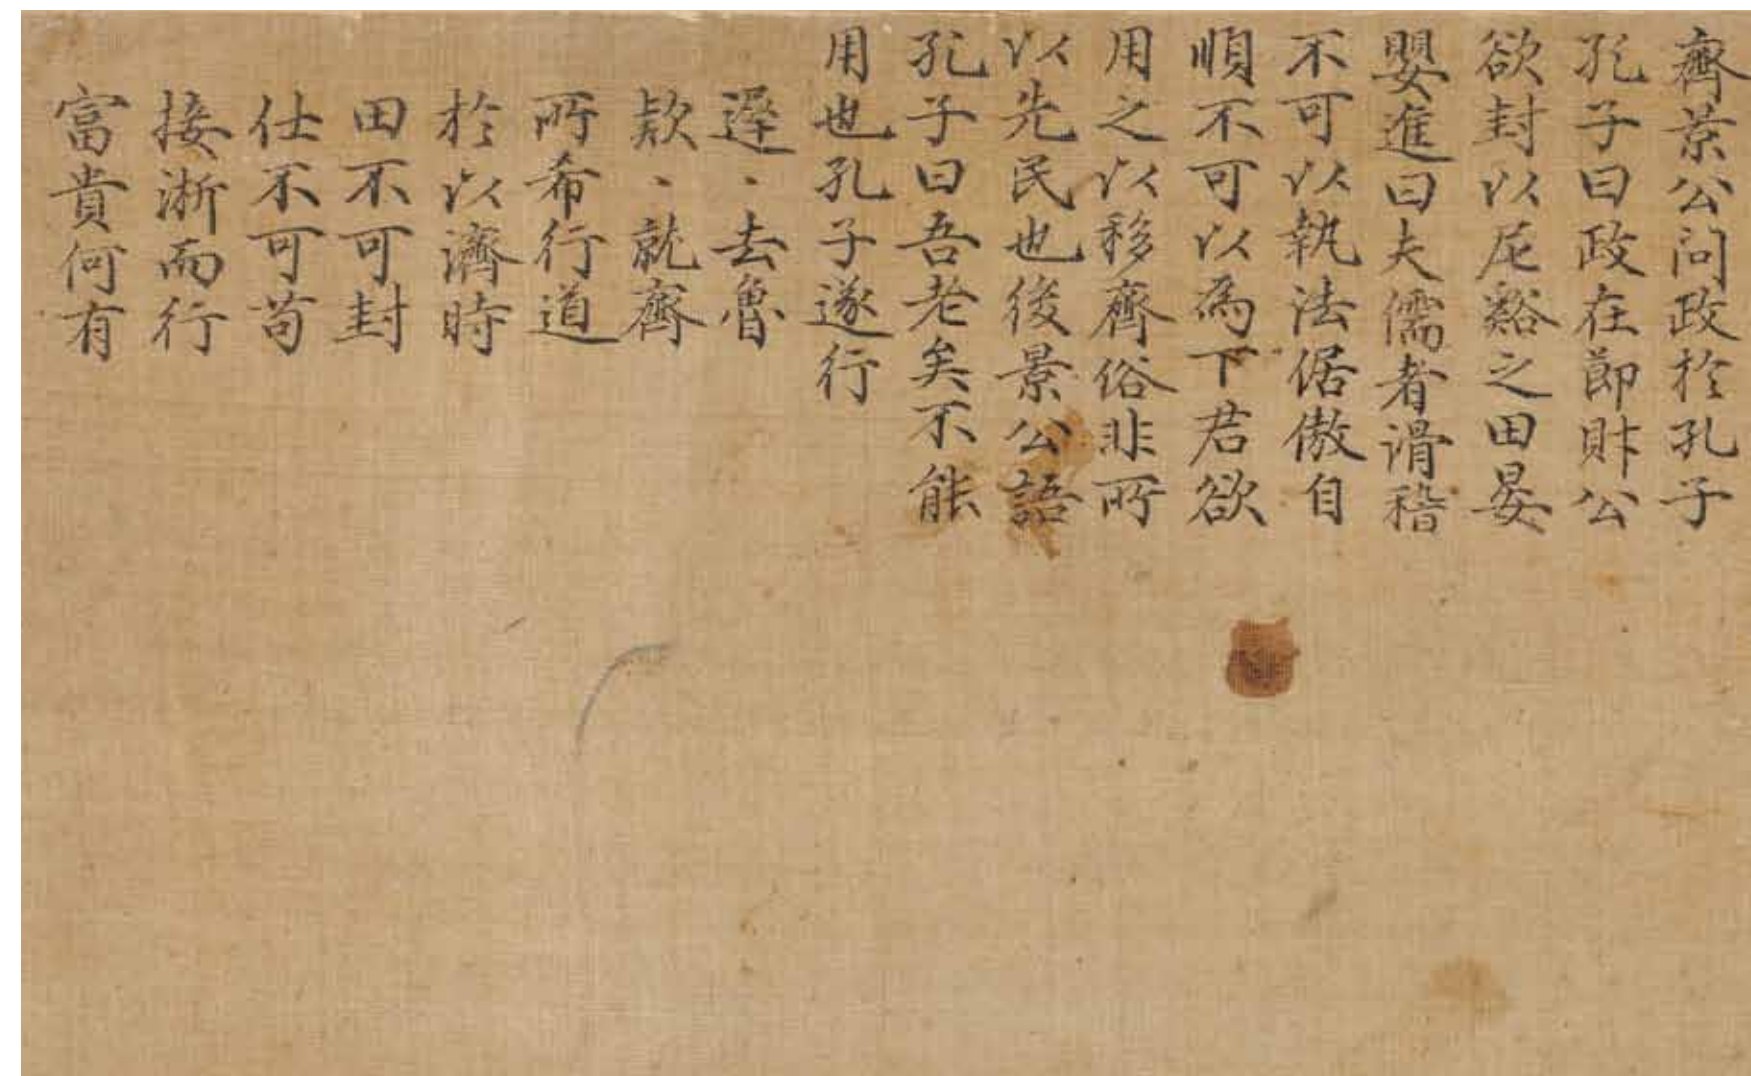 齊景公问政於孔子
孔子曰政在節財公
欲封以尼谿之田晏
嬰進曰夫儒者滑稽
不可以執法倨傲自
順不可以為下君欲
用之以移齊俗非所
以先民也後景公語
孔子曰吾老矣不能
用也孔子遂行
遲、去魯
欵、就齊
所希行道
於以濟時
田不可封
仕不可苟
接淅而行
富貴何有